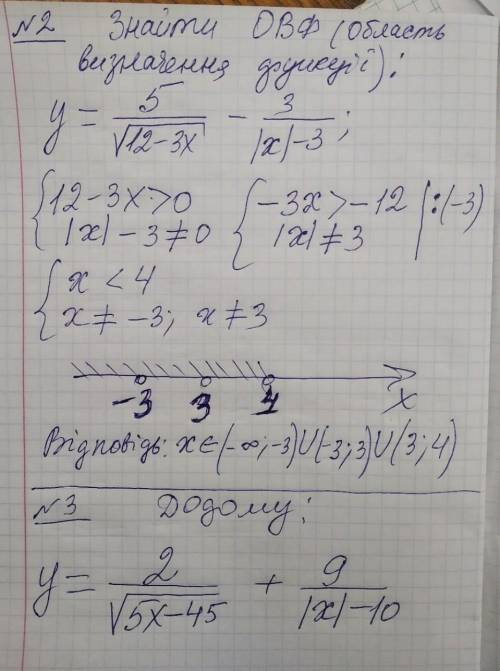 №2 Знайти ОВФ (область
визначення функції):
y = 5/√(12-3x) - 3/(|x|-3);
{12-3x>0 {-3x>-12 | :(-3)
{|x|-3≠0 {|x|≠3
{x<4
{x≠-3; x≠3
-3 3 4 x
Відповідь: x∈(-∞;-3)∪(-3;3)∪(3;4)
№3 Додому:
y = 2/√(5x-45) + 9/(|x|-10)